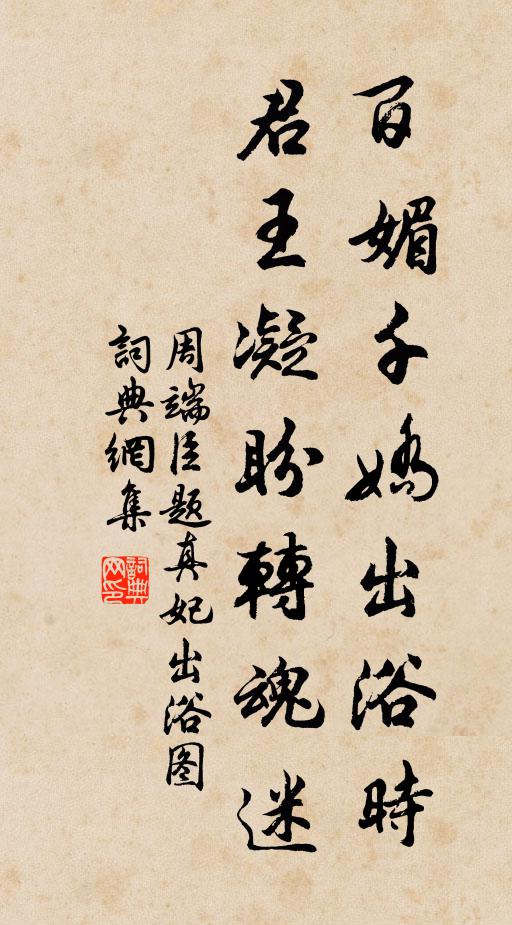 百媚千嬌出浴時
君王凝盼轉魂迷
周端臣題真妃出浴图
詞典網集
詞典網印